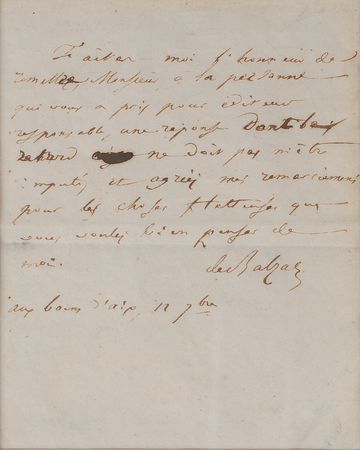 Faites moi l'honneur de
remettre, Monsieur, à la personne
qui vous a pris pour éditeur
responsable, une réponse Dont le
retard ne doit pas m'être
imputé, et agréez mes remerciements
pour les choses flatteuses que
vous voulez bien penser de
moi.
de Balzac
aux bains d'aix, 12 7bre